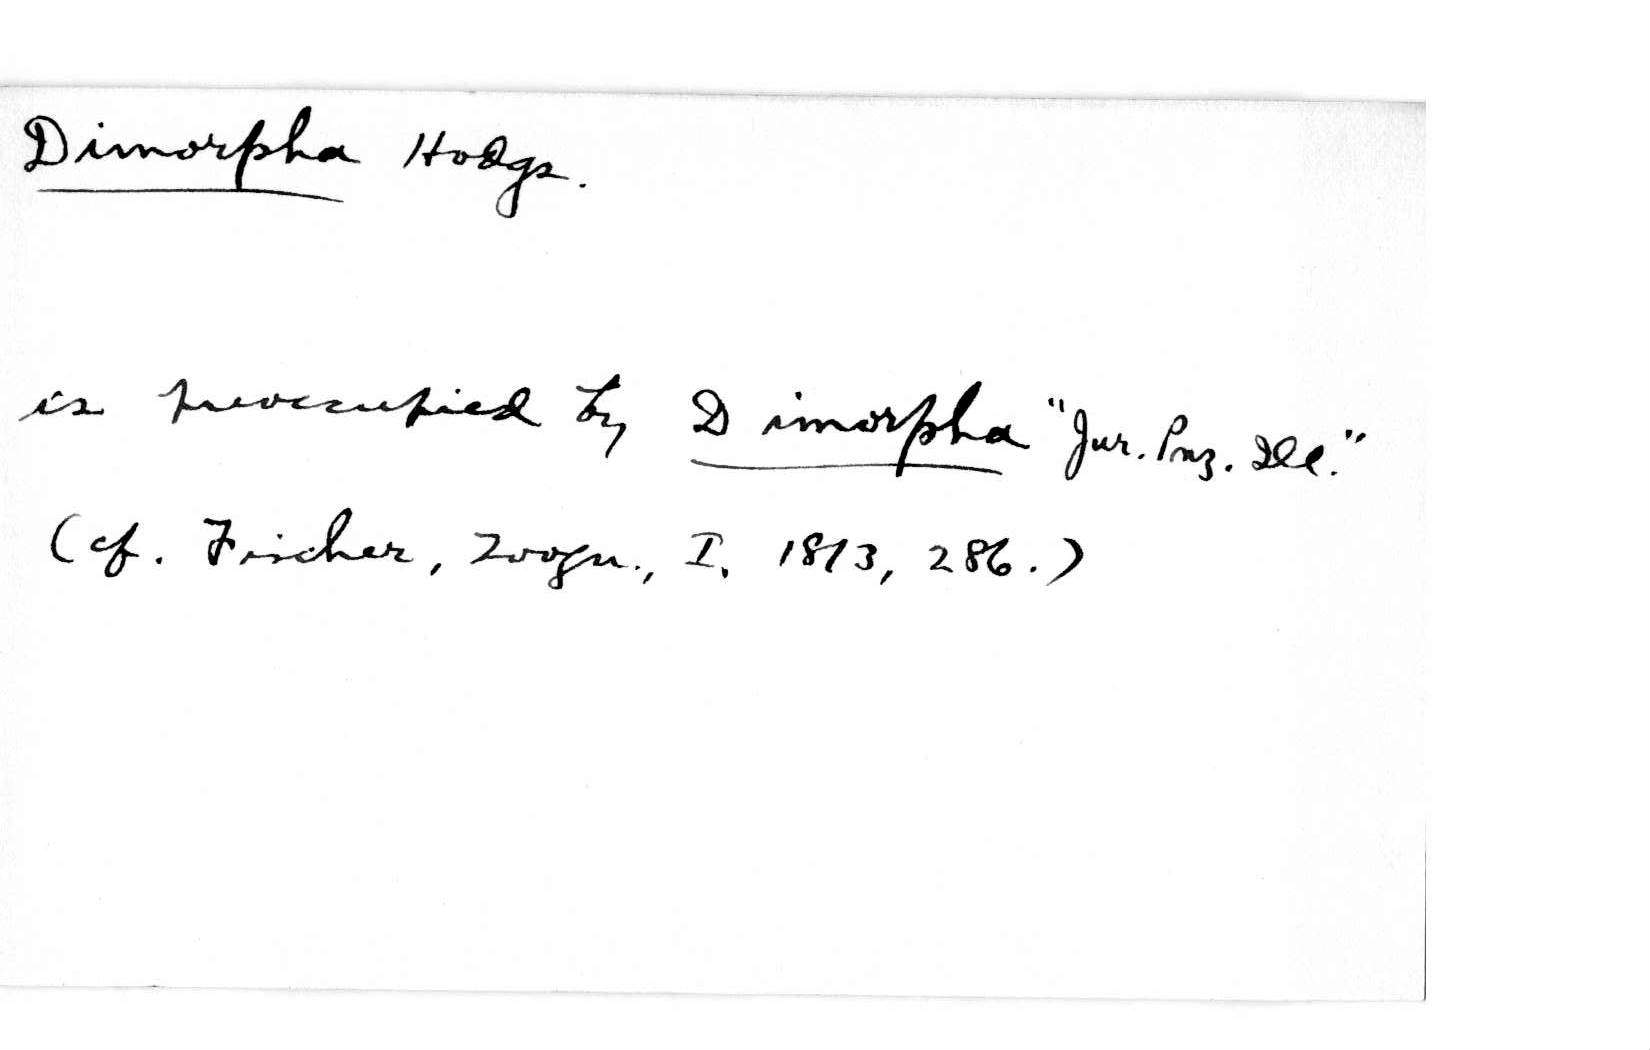 Dimorpha Hodgs.
is preoccupied by Dimorpha "Jur. Pnz. Ill."
(cf. Fischer, Zoogn., I, 1813, 286.)